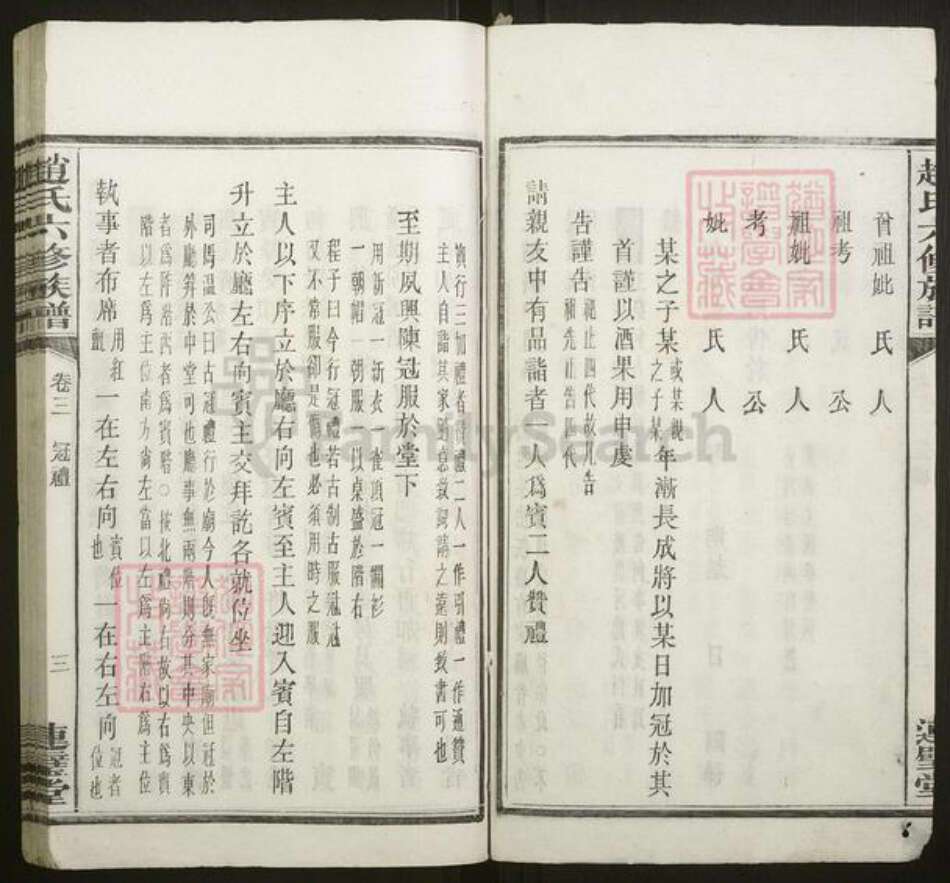 曾祖妣 氏 人
祖考 公
祖妣 氏 人
考 公
妣 氏 人
某之子某或某親之子某年漸長成將以某日加冠於其
首謹以酒果用申虔
告謹告禰止四代故凡告祖先止告四代
請親友中有品詣者一人爲賓二人贊禮
行三加禮者 禮二人一作引禮一作通贊
主人自詣其家 意致詞請之遠則致書可也
至期夙興陳冠服於堂下
用新冠一新衣一雀頂冠一襴衫
一朝帽一朝服一以桌盛於階右
程子曰今行冠禮若古制古服冠冠
又不常服卻是僞也必須用時之服
主人以下序立於廳右向左賓至主人迎入賓自左階
升立於廳左右向賓主交拜訖各就位坐
司馬温公曰古冠禮行於廟今人旣無家廟但冠於
外廳筭於中堂可也廳事無兩階則分其中央以東
者爲阼階西者爲賓階○按北禮尚右故以右爲賓
階以左爲主位南方尚左當以左爲主階右爲主位
執事者布席用紅氈一在左右向賓位也一在右左向冠者位也
趙氏六修族譜 卷三 冠禮 三 連璧堂
趙氏六修族譜 連璧堂
FamilySearch